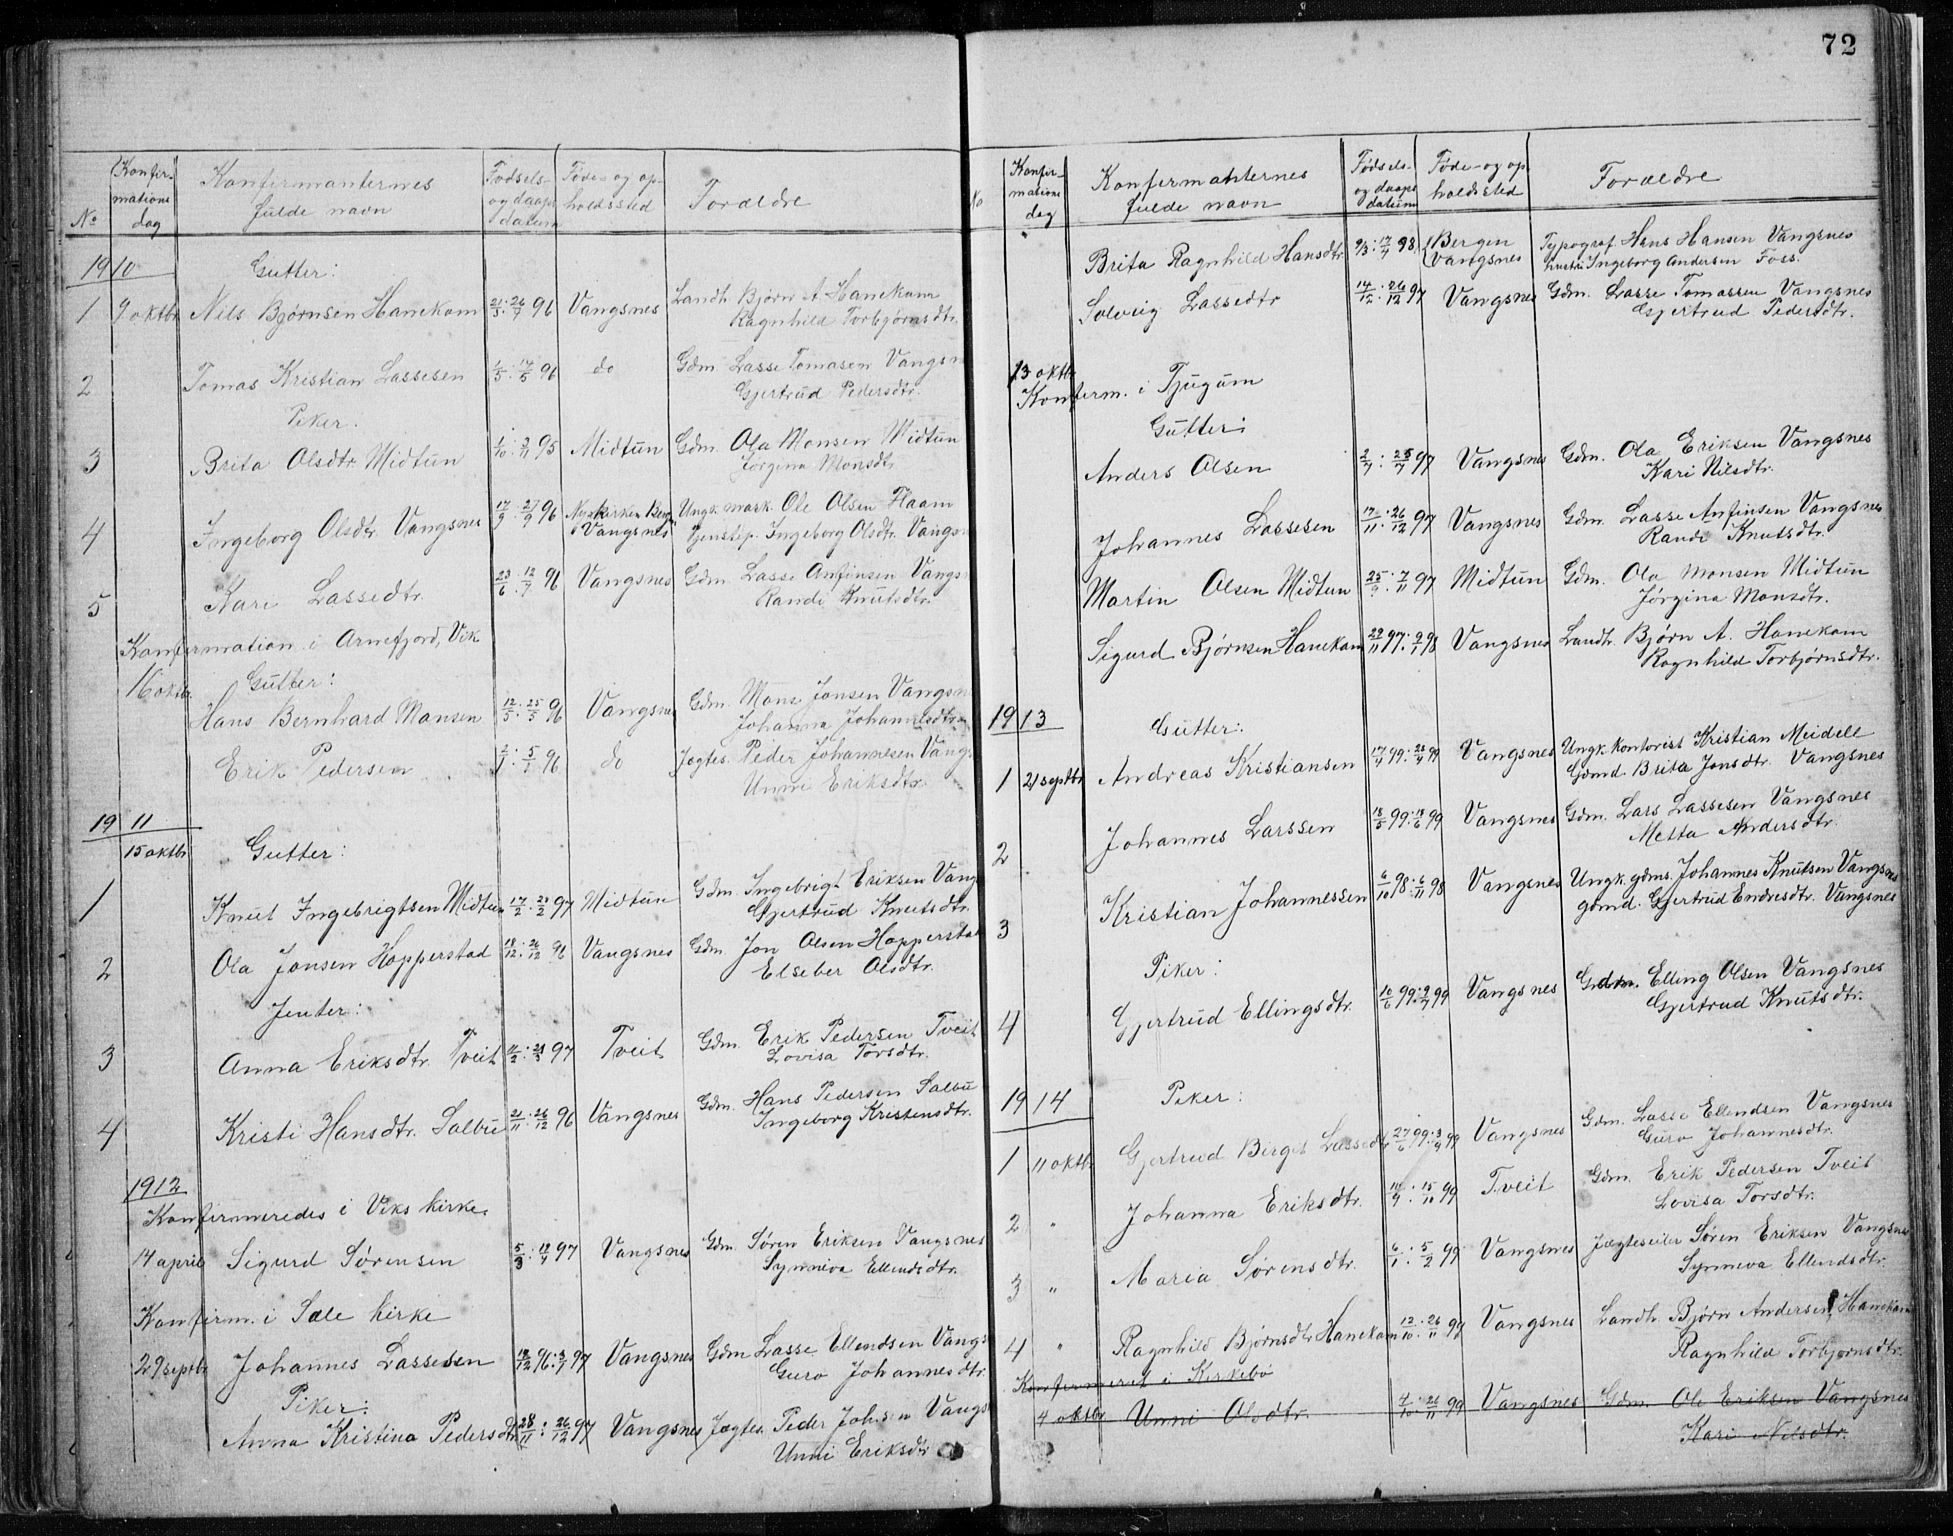 72
No
Konfir-
mations
dag
Konfirmanternes
fulde navn
Fødsels-
og daaps
datum
Føde- og op-
holdssted
Forældre
1910 Gutter:
1 9 oktbr Nils Bjørnsen Hanekam 21/5: 26/7 96 Vangsnes Landh. Bjørn A. Hanekam
Ragnhild Torbjørnsdtr.
2 Tomas Kristian Lassesen 1/5: 17/5 96 do Gdm. Lasse Tomasen Vangsn
Gjertrud Pedersdtr.
Piker.
3 Brita Olsdtr. Midtun 1/10: 3/11 95 Midtun Gdm. Ola Monsen Midtun
Jørgina Monsdtr
4 Ingeborg Olsdtr. Vangsnes 17/9: 27/9 96 Nykirken Berg Ungk. mask. Ole Olsen Flaam
Vangsnes Tjenstep. Ingeborg Olsdtr. Vangsn
5 Kari Lassedtr. 23/6: 12/7 96 Vangsnes Gdm. Lasse Anfinsen Vangsn
Randi Knutsdtr.
Konfirmation i Arnefjord, Vik
16 oktbr Gutter:
Hans Bernhard Monsen 12/5: 25/5 96 Vangsnes Gdm. Mons Jonsen Vangsn
Johanna Johannesdtr
Erik Pedersen 2/1: 5/1 96 do Jægtes. Peder Johannesen Vangs
Unni Eriksdtr
1911
15 oktbr Gutter:
1 Knut Ingebrigtsen Midtun 17/2: 23/2 97 Midtun Gdm. Ingebrigt Eriksen Vang
Gjertrud Knutsdtr.
2 Ola Jonsen Hopperstad 18/12: 26/12 96 Vangsnes Gdm. Jon Olsen Hopperstad
Elseber Olsdtr.
Jenter:
3 Anna Eriksdtr. Tveit 11/2: 21/3 97 Tveit Gdm. Erik Pedersen Tveit
Lovisa Torsdtr.
4 Kristi Hansdtr. Salbu 21/11: 26/12 96 Vangsnes Gdm. Hans Pedersen Salbu
Ingeborg Kristensdtr.
1912
Konfirmeredes i Viks kirke
14 april Sigurd Sørensen 5/3: 19/4 97 Vangsnes Gdm. Søren Eriksen Vangsnes
Synneva Ellendsdtr.
Konfirm. i Sæle kirke
29 septbr Johannes Lassesen 19/12 96: 3/1 97 Vangsnes Gdm Lasse Ellendsen Vangs
Guro Johannesdtr.
Piker:
Anna Kristina Pedersdtr 28/11: 26/12 97 Vangsnes Jægtes. Peder Johsen Vangs
Unni Eriksdtr
No
Konfir-
mations
dag
Konfirmanternes
fulde navn
Fødsels-
og daaps
datum
Føde- og op-
holdssted
Forældre
Brita Ragnhild Hansdtr. 9/3: 17/4 98 Bergen Typograf Hans Hansen Vangsnes
Vangsnes hustru Ingeborg Andersen Foss.
Solveig Lassedtr 14/12: 26/12 97 Vangsnes Gdm. Lasse Tomassen Vangsnes
Gjertrud Pedersdtr.
13 oktbr
Konferm. i Tjugum
Gutter:
Anders Olsen 2/7: 25/7 97 Vangsnes Gdm. Ola Eriksen Vangsnes
Kari Nilsdtr.
Johannes Lassesen 17/11: 26/12 97 Vangsnes Gdm. Lasse Anfinsen Vangsnes
Randi Knutsdtr.
Martin Olsen Midtun 25/9: 7/11 97 Midtun Gdm. Ola Monsen Midtun
Jørgina Monsdtr.
Sigurd Bjørnsen Hanekam 29/11 97: 9/1 98 Vangsnes Landh. Bjørn A. Hanekam
Ragnhild Torbjørnsdtr.
1913 Gutter:
1 21 septbr Andreas Kristiansen 17/4 99: 23/4 99 Vangsnes Ungk. kontorist Kristian Meidell
Gamd Brita Jonsdtr. Vangsnes
2 Johannes Larssen 18/5 99: 18/6 99 Vangsnes Gdm. Lars Lassesen Vangsnes
Metta Andersdtr.
3 Kristian Johannessen 6/10 98: 6/11 98 Vangsnes Ungk. gdms. Johannes Knutsen Vangsnes
gdmd. Gjertrud Endresdtr. Vangsnes
Piker:
4 Gjertrud Ellingsdtr. 10/6 99: 9/7 99 Vangsnes Gdm. Elling Olsen Vangsnes
Gjertrud Knutsdtr.
1914 Piker:
1 11 oktbr. Gjertrud Birgit Lassedtr 27/6 99: 3/9 99 Vangsnes Gdm. Lasse Ellendsen Vangsnes
Guro Johannesdtr.
2 " Johanna Eriksdtr. 14/9: 15/10 99 Tveit Gdm. Erik Pedersen Tveit
Lovisa Torsdtr.
3 " Maria Sørensdtr. 6/1: 5/2 99 Vangsnes Jægteseiler Søren Eriksen Vangsnes
Synneva Ellendsdtr.
4 " Ragnhild Bjørnsdtr Hanekam 12/10: 26/11 99 Vangsnes Landh. Bjørn Andersen Hanekam
Ragnhild Torbjørnsdtr.
Konfermeret i Kirkebø
4 oktbr Unni Olsdtr. 4/10: 26/11 99 Vangsnes Gdm. Ole Eriksen Vangsnes
Kari Nilsdtr.